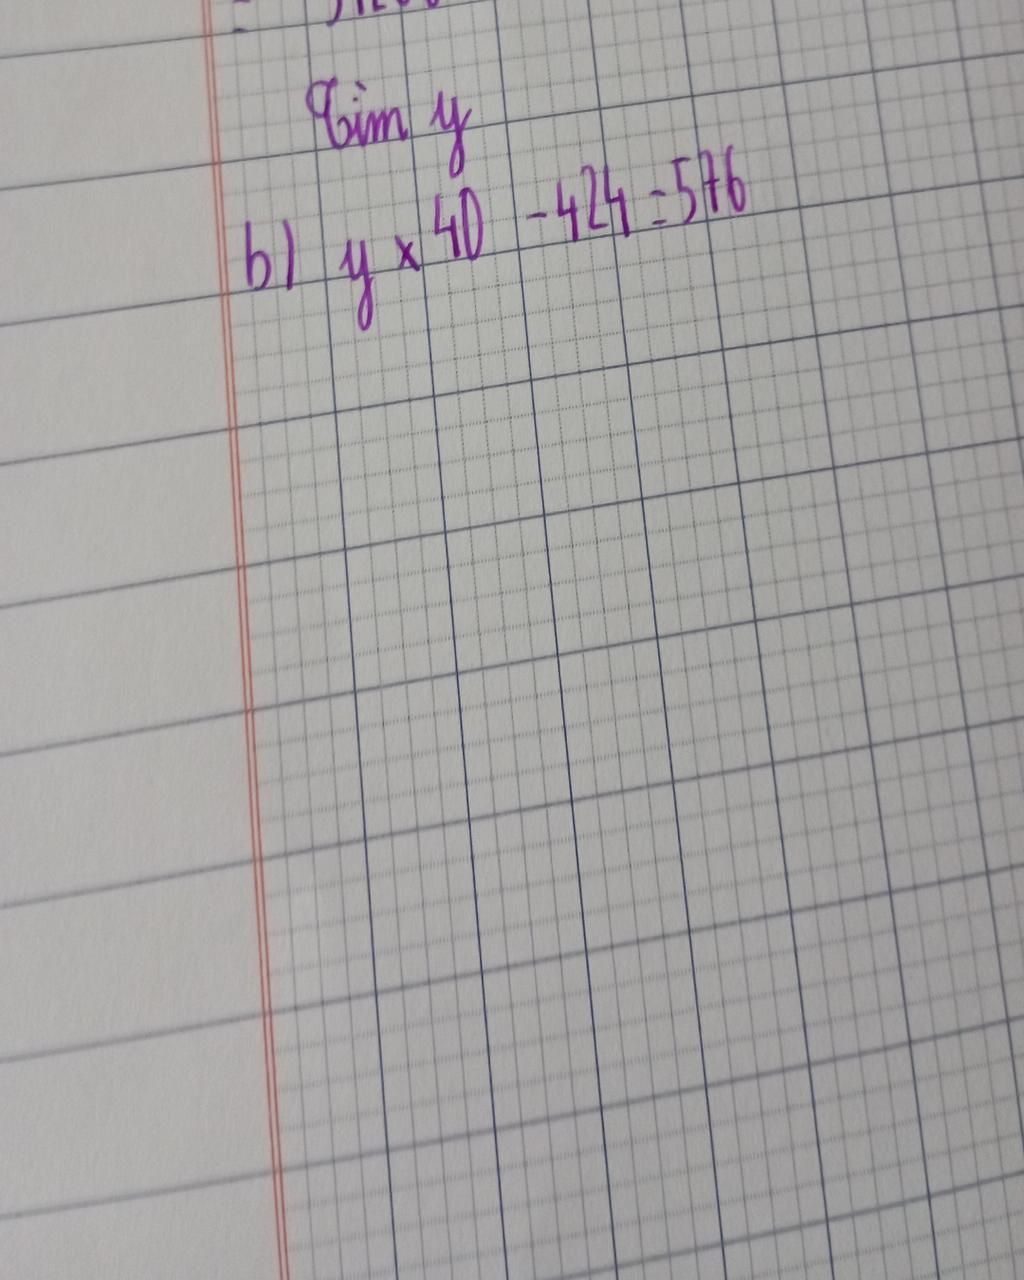 Tìm y
b) y x 40 - 424 = 576